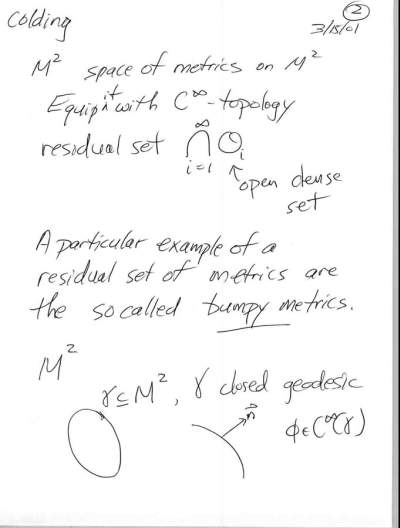 Colding
②
3/15/01
M² space of metrics on M²
Equip it with C^∞-topology
residual set ∩_{i=1}^∞ O_i
open dense
set
A particular example of a
residual set of metrics are
the so called bumpy metrics.
M²
γ ⊆ M², γ closed geodesic
n⃗
φ ∈ C^∞(γ)